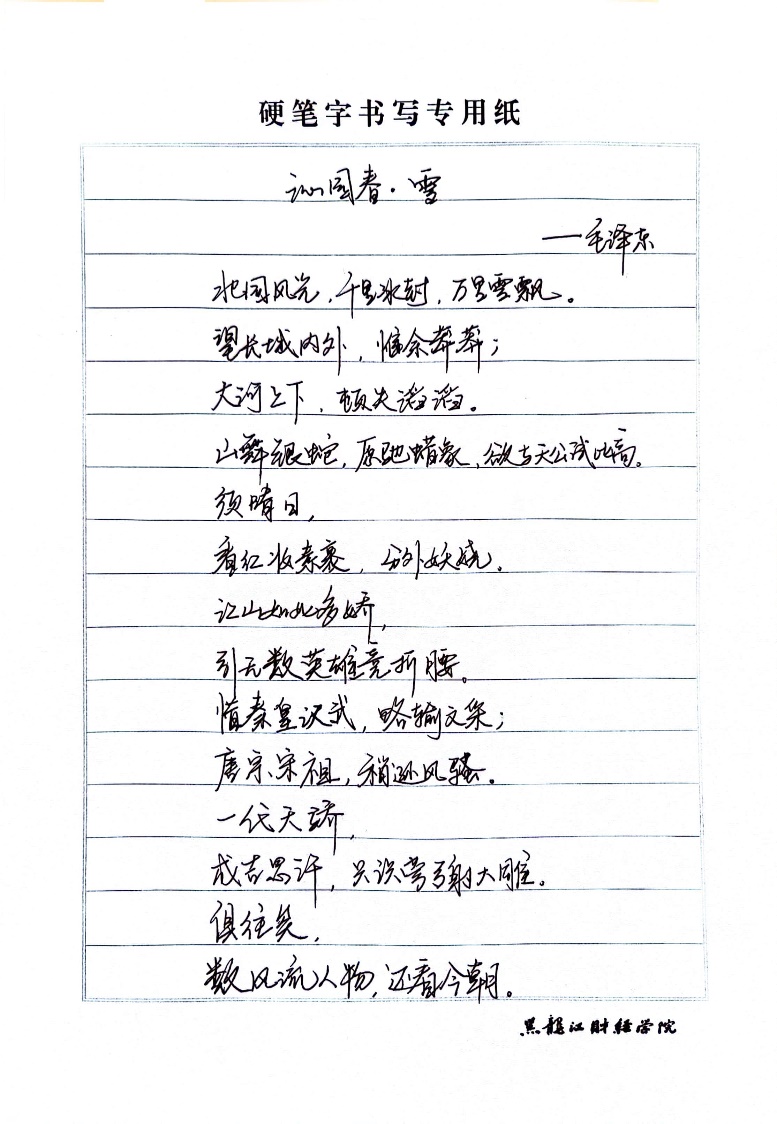 硬笔字书写专用纸
沁园春·雪
——毛泽东
北国风光，千里冰封，万里雪飘。
望长城内外，惟余莽莽；
大河上下，顿失滔滔。
山舞银蛇，原驰蜡象，欲与天公试比高。
须晴日，
看红妆素裹，分外妖娆。
江山如此多娇，
引无数英雄竞折腰。
惜秦皇汉武，略输文采；
唐宗宋祖，稍逊风骚。
一代天骄，
成吉思汗，只识弯弓射大雕。
俱往矣，
数风流人物，还看今朝。
黑龍江財經學院